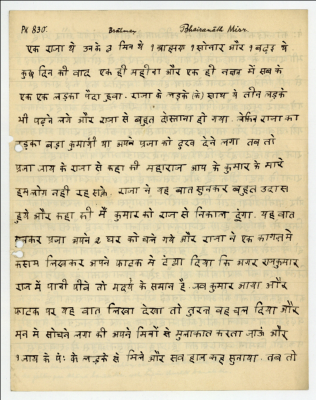 PK 830. Brahman Bhairanath Misr.
एक राजा थे उनके 3 मित्र थे १ ब्राह्मण १ सोनार और १ बढ़ई थे
कुछ दिन की बाद एक ही महीना और एक ही नछत्र में सब के
एक एक लड़का पैदा हुवा. राजा के लड़के (के) साथ मे तीन लड़के
भी पढ़ने लगे और राजा से बहुत दोस्ताना हो गया. लेकिन राजा का
लड़का बड़ा कुमार्गी था अपने प्रजा को दुख देने लगा तब तो
प्रजा जाय के राजा से कहा की महाराज आप के कुमार के मारे
हमलोग नही रह सकते. राजा ने यह बात सुनकर बहुत उदास
हुये और कहा की मैं कुमार को राज से निकाल दूंगा. यह बात
सुनकर प्रजा अपने २ घर को चले गये और राजा ने एक कागज मे
कसम लिखकर अपने फाटक मे टंगा दिया कि अगर राजकुमार
राज में पानी पीवे तो के समान है. जब कुमार आया और
फाटक पर यह बात लिखा देखा तो तुरन्त वह चल दिया और
मन मे सोचने लगा की अपने मित्रों से मुलाकात करता जाउं और
जाय के के लड़के से मिले और सब हाल कह सुनाया. तब तो